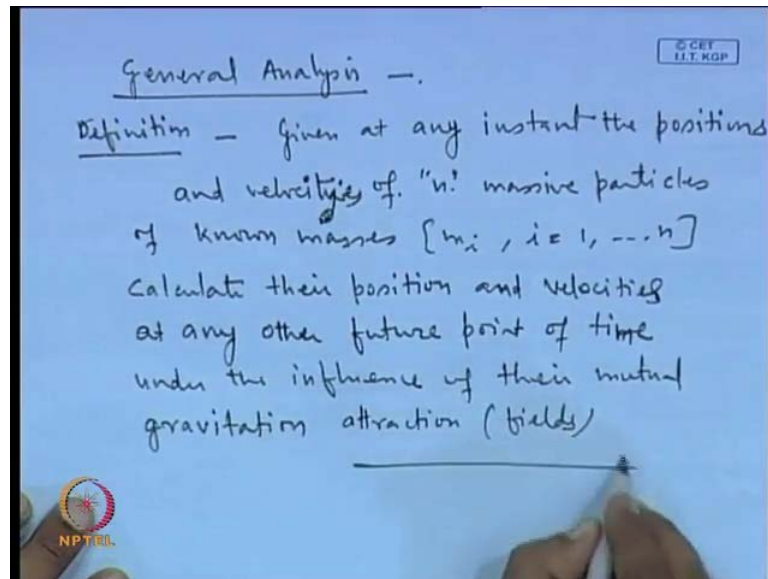 © CET
I.I.T. KGP
General Analysis —.
Definition — Given at any instant the positions
and velocities of "n" massive particles
of known masses [mi, i = 1, ---n]
Calculate their position and velocities
at any other future point of time
under the influence of their mutual
gravitation attraction (fields)
NPTEL